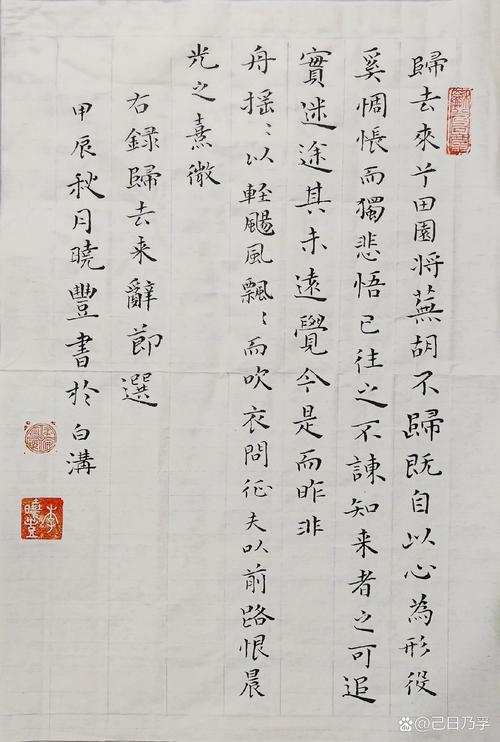 歸去來兮田園將蕪胡不歸既自以心為形役
奚惆悵而獨悲悟已往之不諫知来者之可追
實迷途其未遠覺今是而昨非
舟摇〻以輕颺風飄〻而吹衣問征夫以前路恨晨
光之熹微
右録歸去来辭節選
甲辰秋月曉豐書於白溝
李曉豐
@己日乃孚